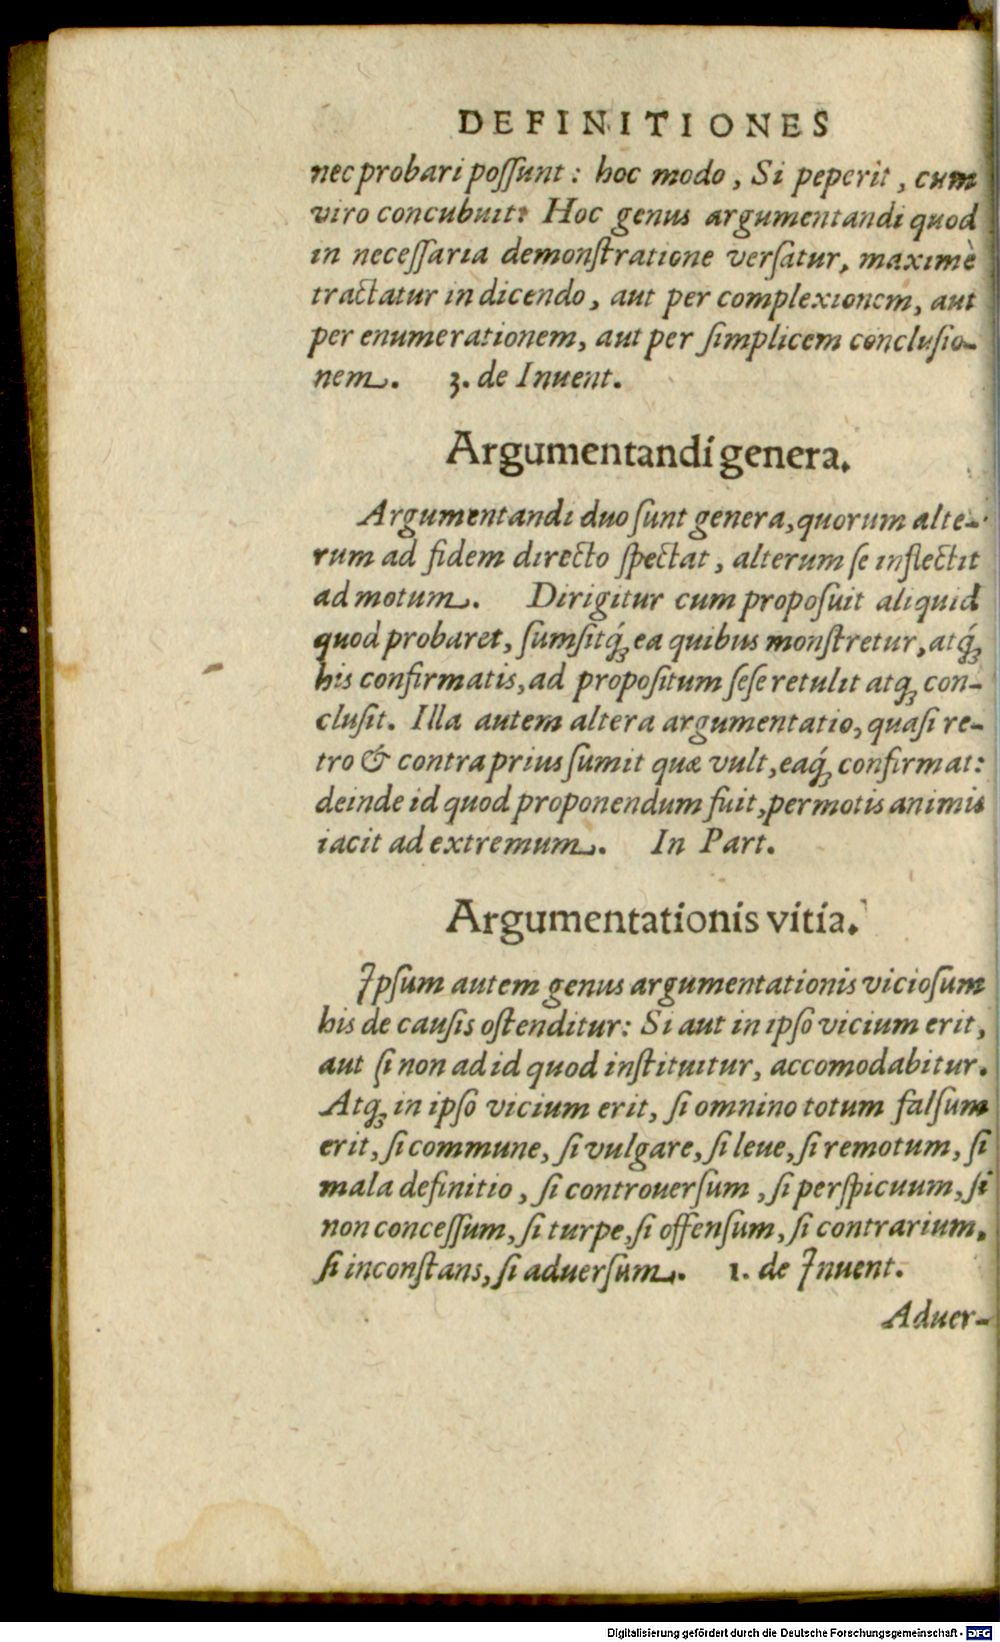 DEFINITIONES
nec probari poſſunt: hoc modo, Si peperit, cum
viro concubuit: Hoc genus argumentandi quod
in neceſſaria demonſtratione verſatur, maximè
tractatur in dicendo, aut per complexionem, aut
per enumerationem, aut per ſimplicem concluſio-
nem. 3. de Inuent.
Argumentandi genera.
Argumentandi duo ſunt genera, quorum alte-
rum ad fidem directo ſpectat, alterum ſe inflectit
ad motum. Dirigitur cum propoſuit aliquid
quod probaret, ſumſitq́ꝫ ea quibus monſtretur, atq́ꝫ
his confirmatis, ad propoſitum ſeſe retulit atqꝫ con-
cluſit. Illa autem altera argumentatio, quaſi re-
tro & contra prius ſumit quæ vult, eaq́ꝫ confirmat:
deinde id quod proponendum fuit, permotis animis
iacit ad extremum. In Part.
Argumentationis vitia.
Ipſum autem genus argumentationis vicioſum
his de cauſis oſtenditur: Si aut in ipſo vicium erit,
aut ſi non ad id quod inſtituitur, accomodabitur.
Atqꝫ in ipſo vicium erit, ſi omnino totum falſum
erit, ſi commune, ſi vulgare, ſi leue, ſi remotum, ſi
mala definitio, ſi controuerſum, ſi perſpicuum, ſi
non conceſſum, ſi turpe, ſi offenſum, ſi contrarium,
ſi inconſtans, ſi aduerſum. 1. de Inuent.
Aduer-
Digitalisierung gefördert durch die Deutsche Forschungsgemeinschaft - DFG